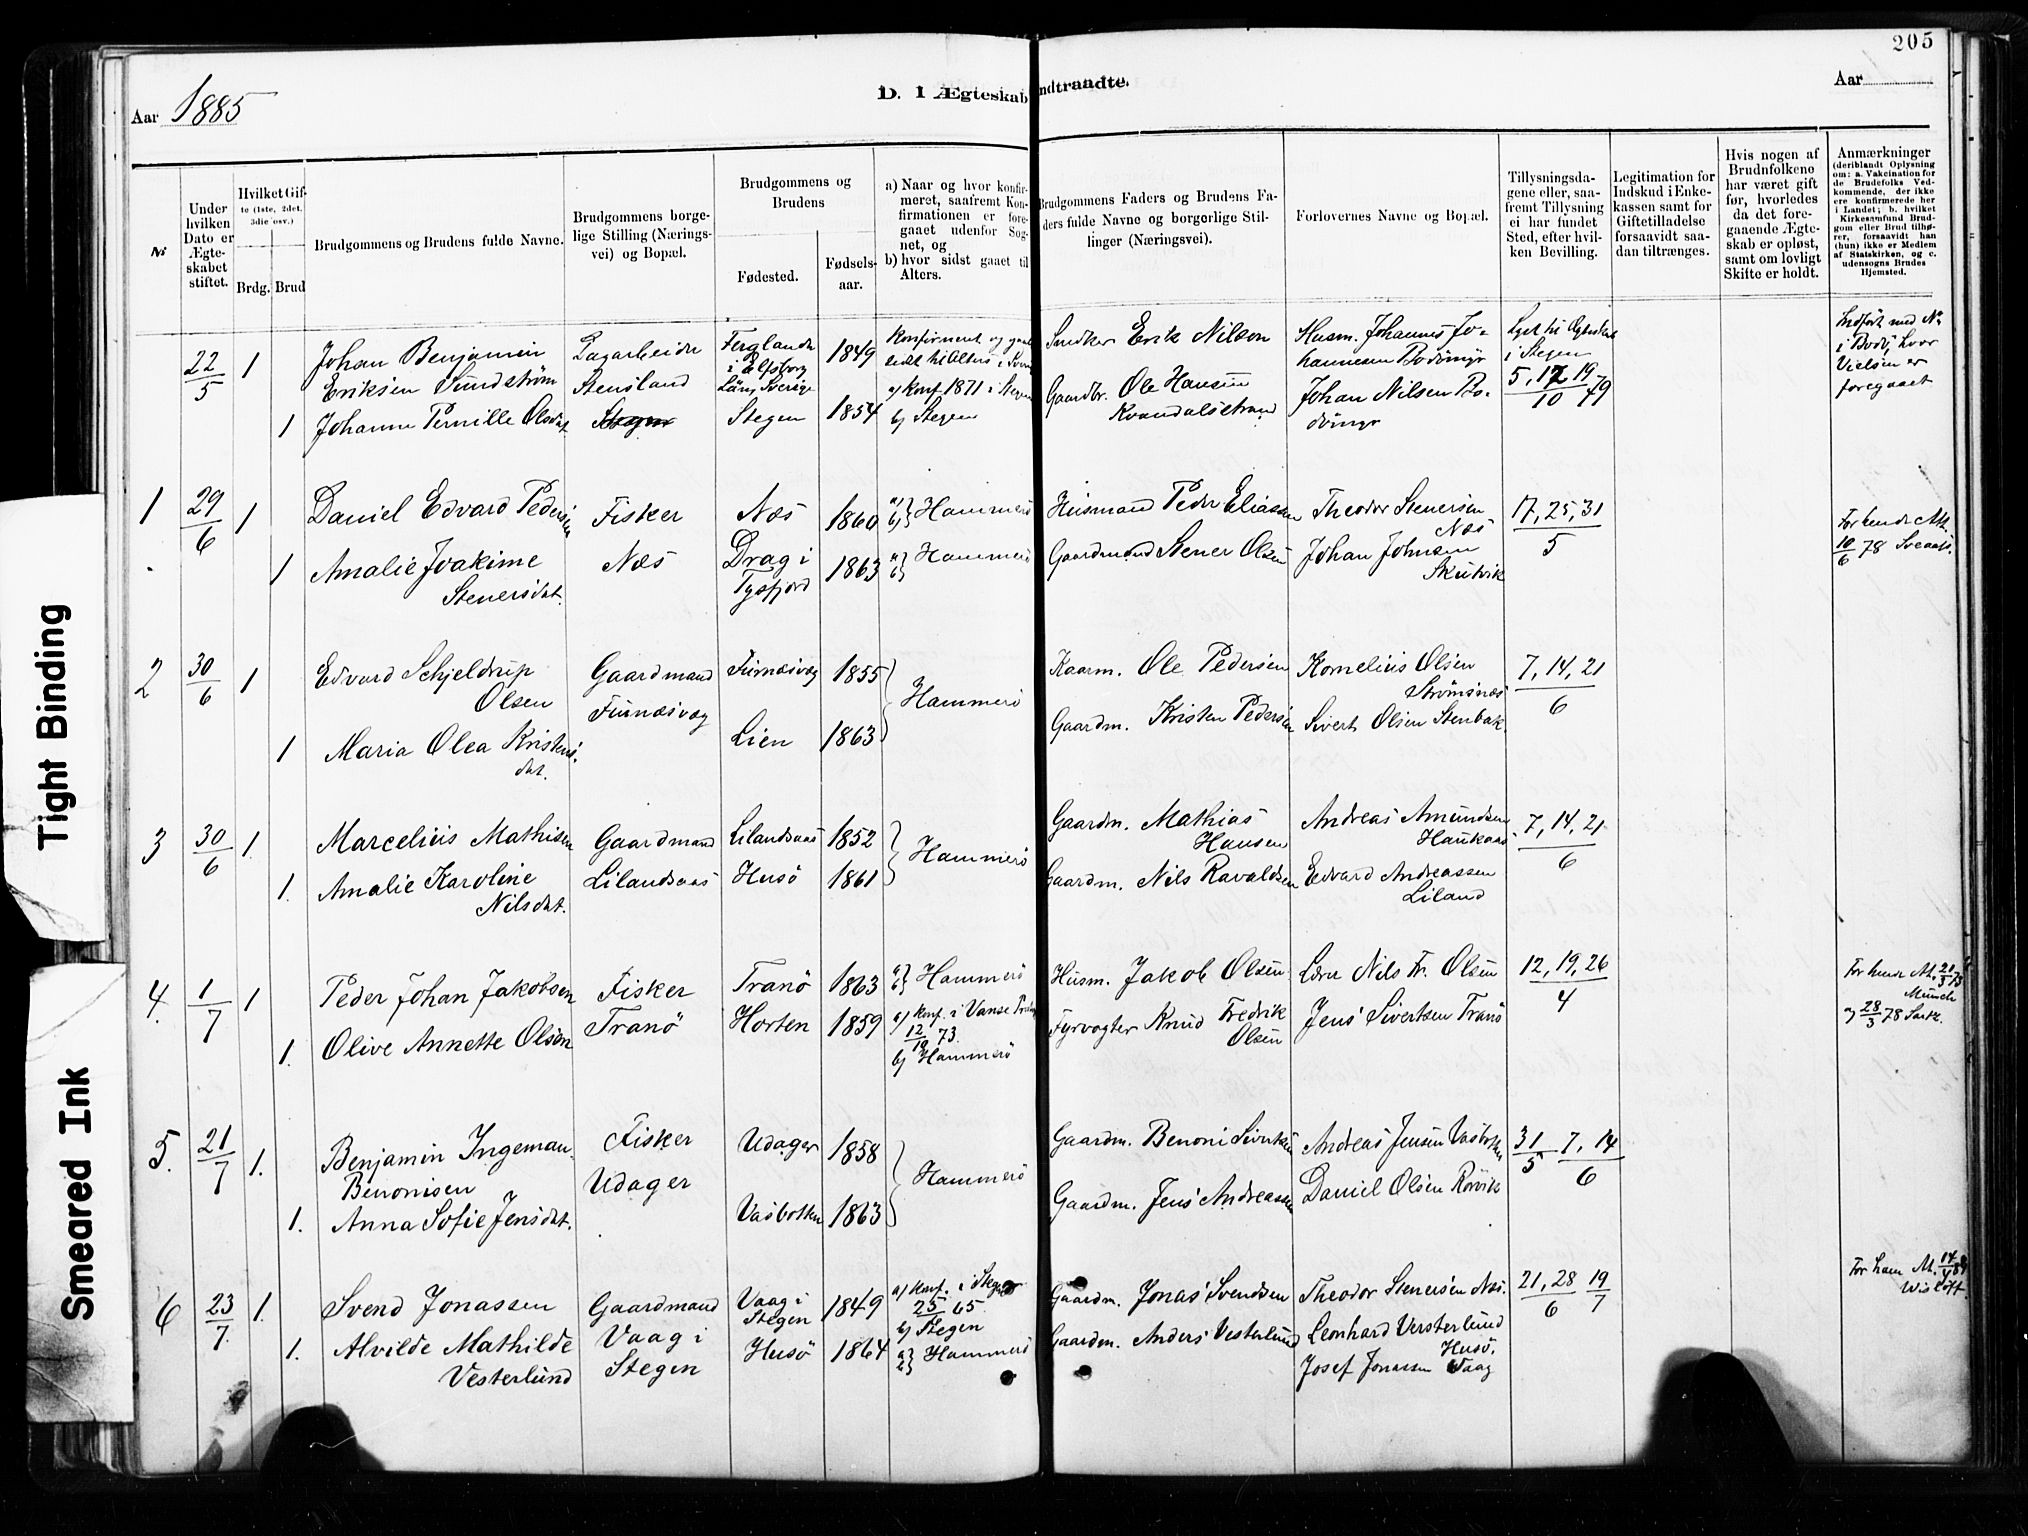 205
Aar 1885
D. I Ægteskab
ndtraadte.
Aar
No
Under hvilken Dato er Ægteskabet stiftet.
Hvilket Gifte (1ste, 2det, 3die osv.)
Brdg. Brud
Brudgommens og Brudens fulde Navne.
Brudgommens borgelige Stilling (Næringsvei) og Bopæl.
Brudgommens og Brudens
Fødested.
Fødselsaar.
a) Naar og hvor konfirmeret, saafremt Konfirmationen er foregaaet udenfor Sognet, og
b) hvor sidst gaaet til Alters.
Brudgommens Faders og Brudens Faders fulde Navne og borgerlige Stillinger (Næringsvei).
Forlovernes Navne og Bopæl.
Tillysningsdagene eller, saafremt Tillysning ei har fundet Sted, efter hvilken Bevilling.
Legitimation for Indskud i Enkekassen samt for Giftetilladelse forsaavidt saadan tiltrænges.
Hvis nogen af Brudnfolkene har været gift før, hvorledes da det foregaaende Ægteskab er opløst, samt om lovligt Skifte er holdt.
Anmærkninger
(deriblandt Oplysning om: a. Vakcination for de Brudefolks Vedkommende, der ikke ere konfirmerede her i Landet; b. hvilket Kirkesamfund Brudgom eller Brud tilhører, forsaavidt han (hun) ikke er Medlem af Statskirken, og c. udensogns Brudes Hjemsted.
22/5 1 Johan Benjamin Eriksen Sundström
Stensland
i Elfsborg Län, Sverige
1849
Snedker Erik Nilson
Husm. Johannes Johannesen Bodømyr
i Stegen
Indført med No i Bodø hvor Vielsen er foregaaet
1 Johanne Pernille Olsdat.
Stegen
Stegen
1854
a) Konf. 1871 i Stegen
b) Stegen
Gaardbr. Ole Hansen Kvandalsstrand
Johan Nilsen Bodømyr
1 29/6 1 Daniel Edvard Pedersen
Fisker
Næs
Næs
1860
a) b) Hammerö
Husmand Peder Eliassen
Theodor Stenersen Næs
17, 25, 31/5
1 Amalie Joakime Stenersdat.
Drag i Tysfjord
1863
a) b) Hammerö
Gaardmand Stener Olsen
Johan Johnsen Skutvik
10/6 78
2 30/6 1 Edvard Schjeldrup Olsen
Gaardmand
Furnæsvæg
1855
Hammerö
Kaarm. Ole Pedersen
Kornelius Olsen Strömsnæs
7, 14, 21/6
1 Maria Olea Kristensdat.
Lien
1863
Gaardm. Kristen Pedersen
Sivert Olsen Stenbak.
3 30/6 1. Marcelius Mathisen
Gaardmand Lilandsaas
Lilandsaas
1852
Hammerö
Gaardm. Mathias Hansen
Andreas Amundsen Haukaas
7, 14, 21/6
1. Amalie Karoline Nilsdat.
Husö
1861
Gaardm. Nils Ravaldsen
Edvard Andreassen Liland
4. 1/7 1 Peder Johan Jakobsen
Fisker Tranö
Tranö
1863
a) b) Hammerö
Husm. Jakob Olsen
Nils Fr. Olsen
12, 19, 26/4
1. Olive Annette Olsen
Horten
1859
b) Hammerö
Fyrvogter Knud Fredrik Olsen
Jens Sivertsen Tranö
5. 21/7 1. Benjamin Ingeman Benonisen
Fisker Udager
Udager
1858
Hammerö
Gaardm. Benoni Sivertsen
Andreas Jensen Vasbotten
31/5 7, 14/6
1. Anna Sofie Jensdat.
Vasbotten
1863
Gaardm. Jens Andreassen
Daniel Olsen Rørvik
6 23/7. 1. Svend Jonassen
Gaardmand Vaag i Stegen
Vaag i Stegen
1849
a) Konf. i Stegen
b) Stegen
Gaardm. Jonas Svendsen
Theodor Stenersen Næs.
21, 28/6 19/7
Wisløff.
1. Alvilde Mathilde Vesterlund
Husö
1864
a) b) Hammerö
Gaardm. Anders Vesterlund
Leonhard Versterlund Husö,
Josef Jonassen Vaag
Tight Binding
Smeared Ink